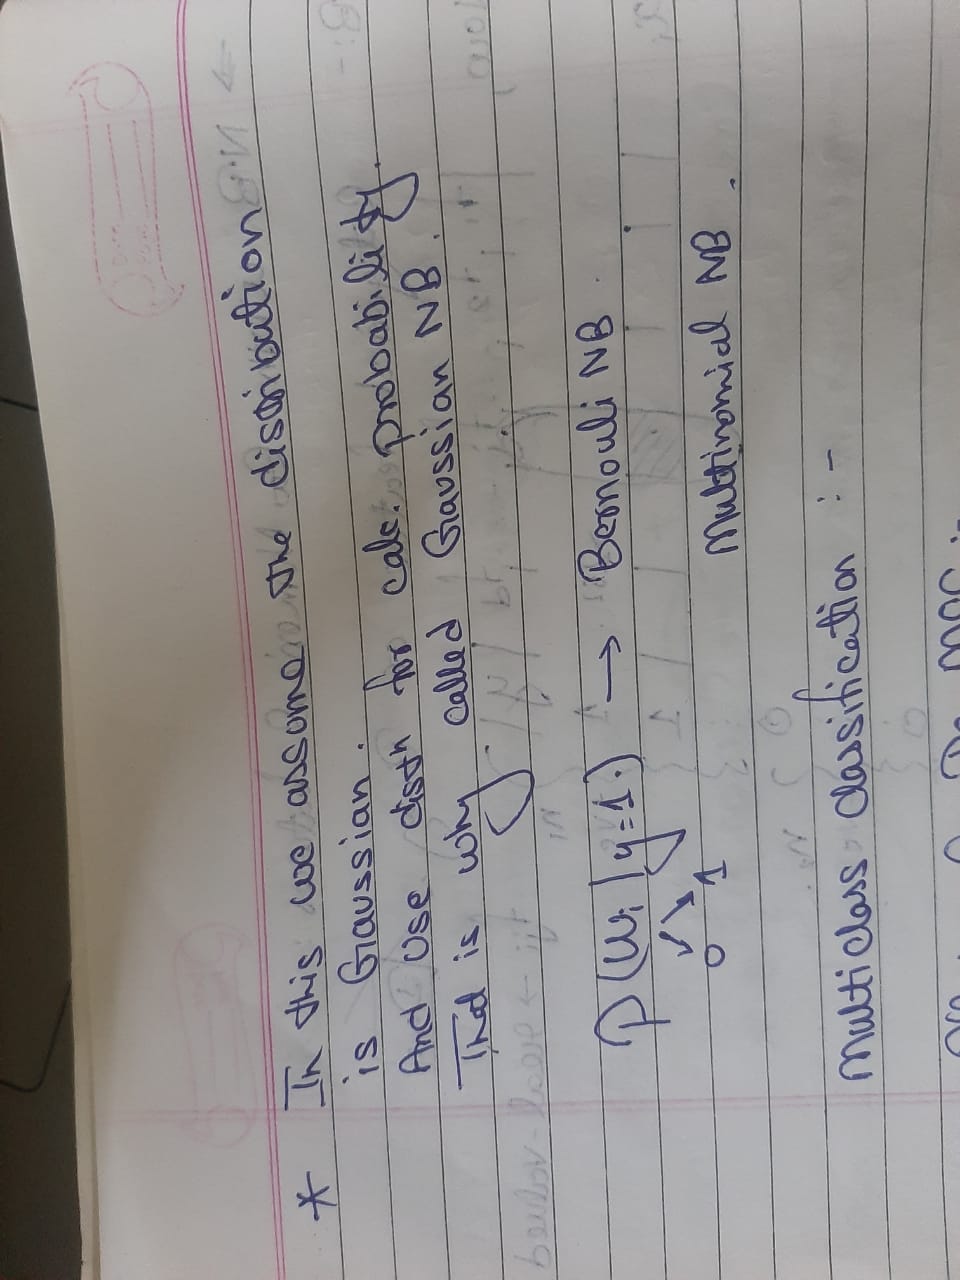 * In this we assume the distribution
is Gaussian.
And use distn for calc. probability.
That is why called Gaussian NB.
P(wi | y=1.) → Bernouli NB.
0 1
Multinomial NB.
Multiclass classification :-